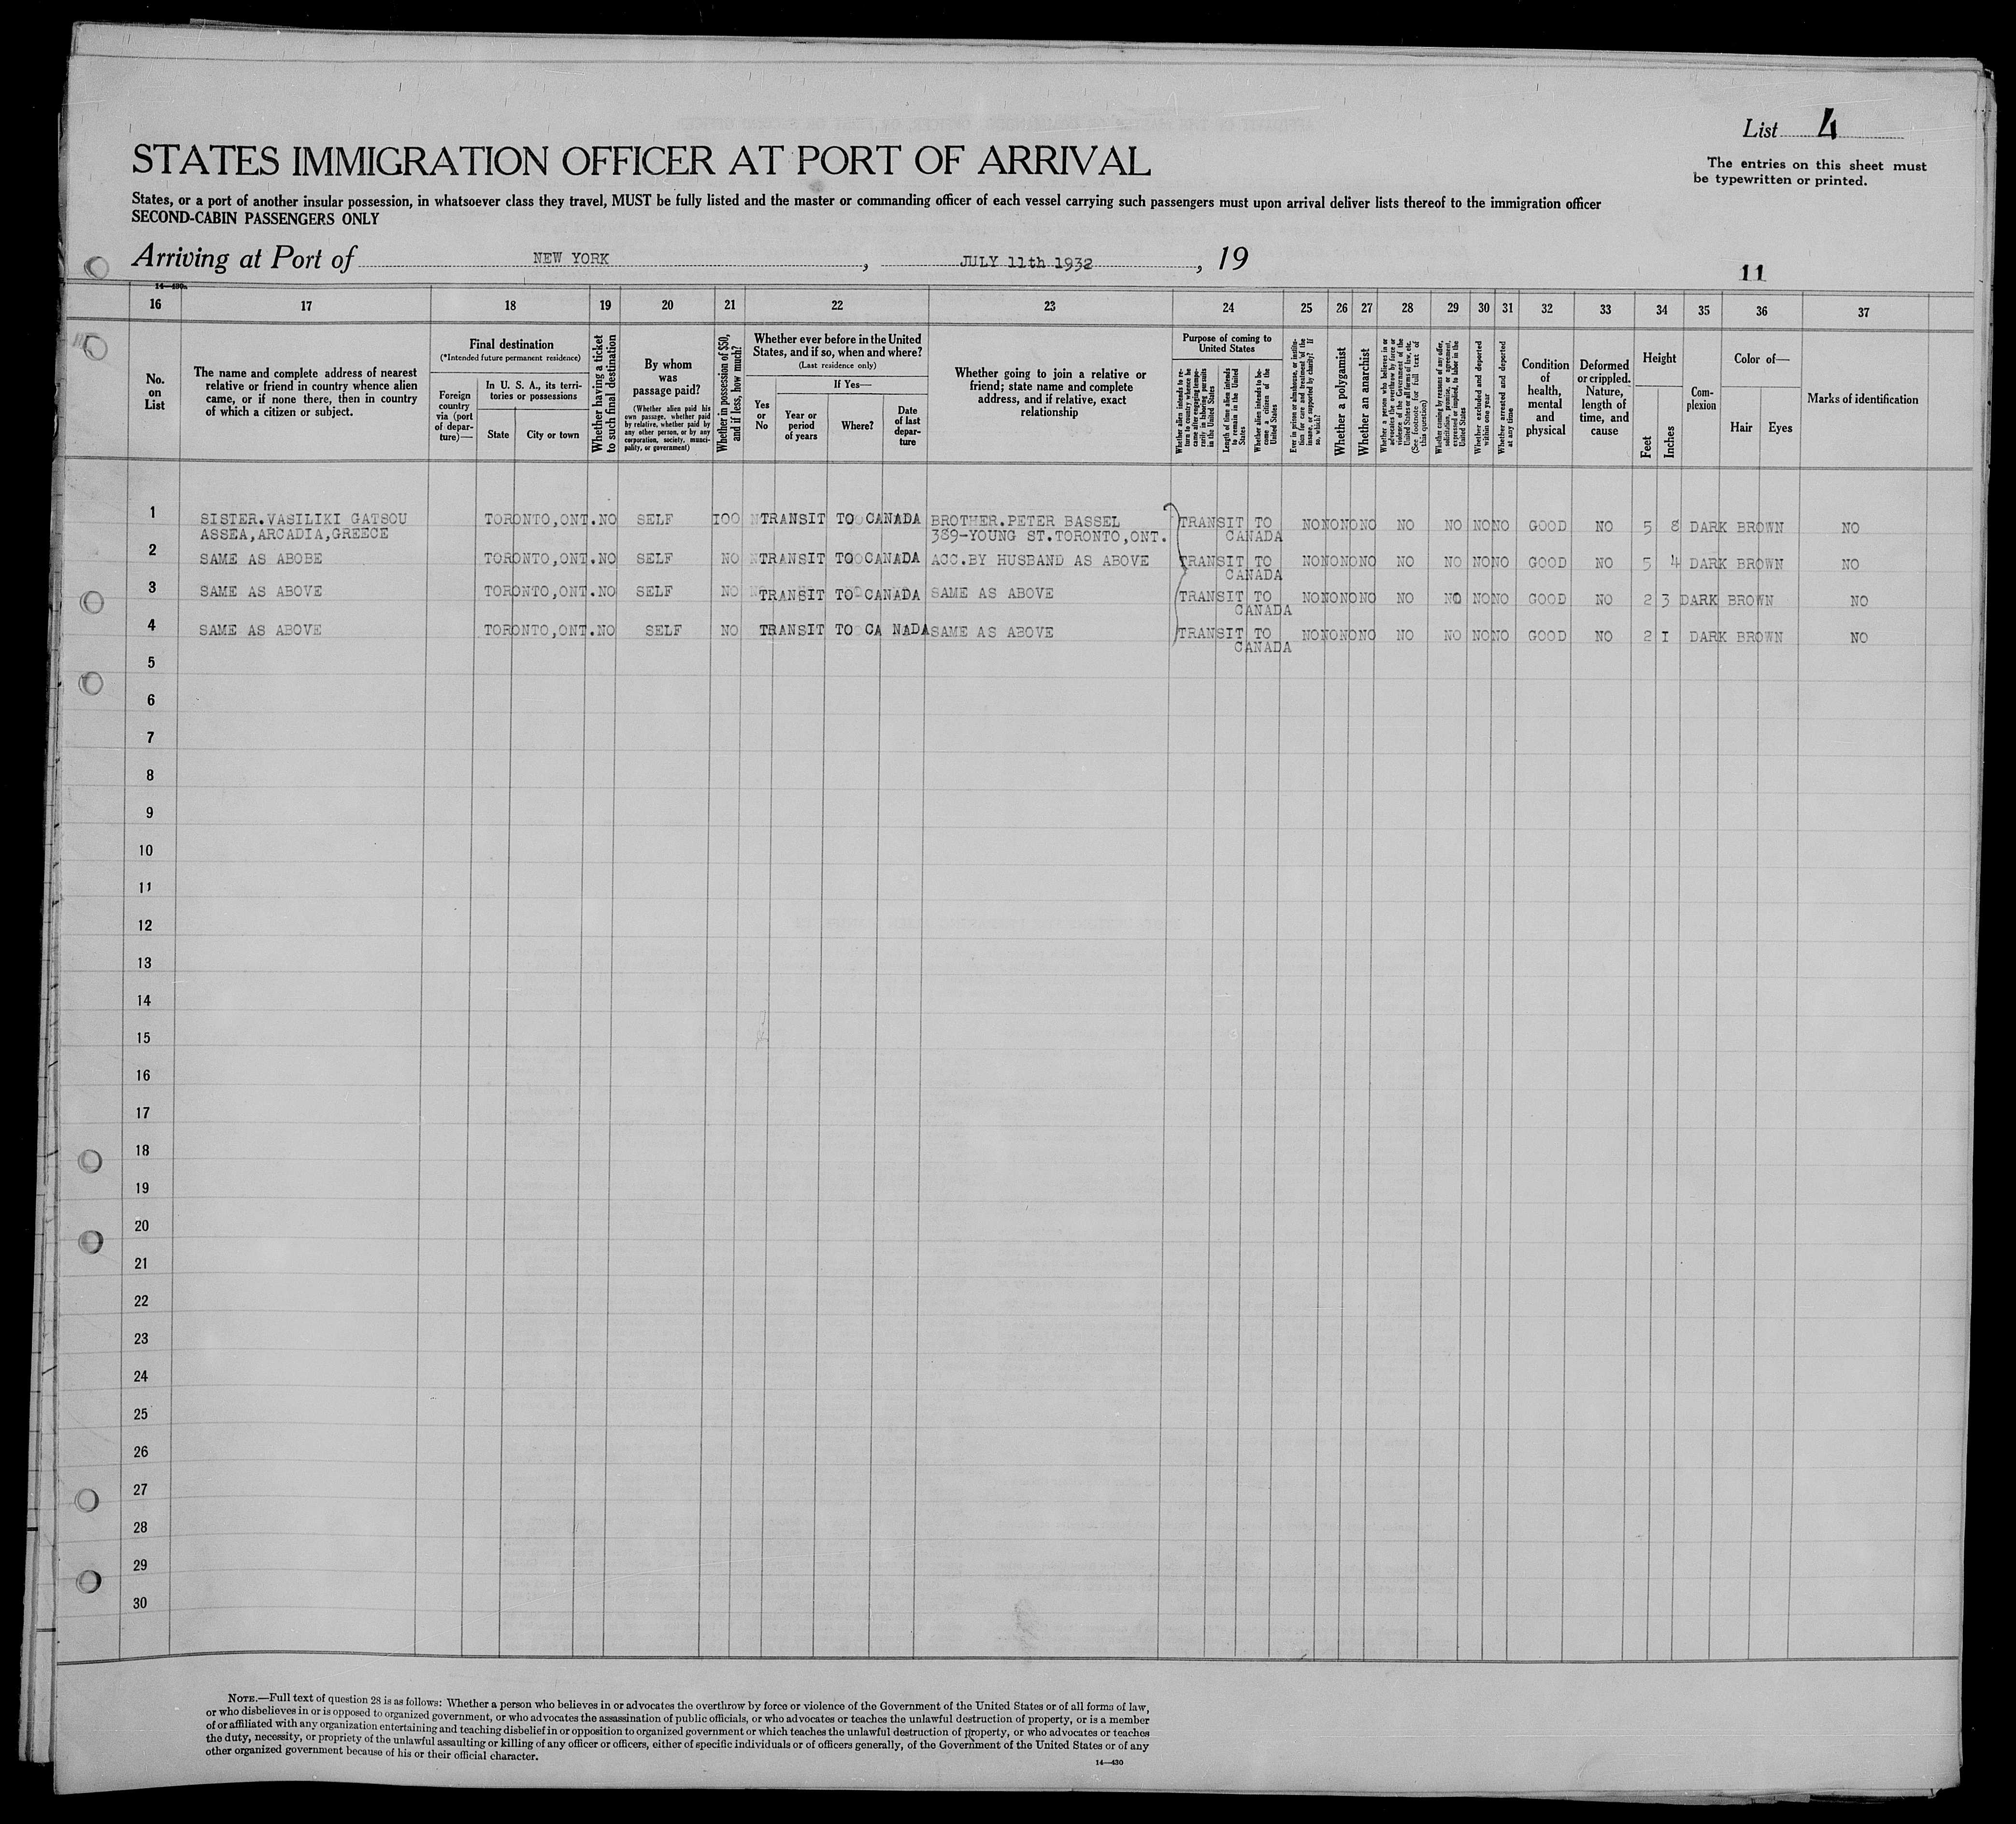 List 4
STATES IMMIGRATION OFFICER AT PORT OF ARRIVAL
The entries on this sheet must
be typewritten or printed.
States, or a port of another insular possession, in whatsoever class they travel, MUST be fully listed and the master or commanding officer of each vessel carrying such passengers must upon arrival deliver lists thereof to the immigration officer
SECOND-CABIN PASSENGERS ONLY
Arriving at Port of NEW YORK, JULY 11th 1932, 19
11
14—430a
16 17 18 19 20 21 22 23 24 25 26 27 28 29 30 31 32 33 34 35 36 37
No.
on
List
The name and complete address of nearest
relative or friend in country whence alien
came, or if none there, then in country
of which a citizen or subject.
Final destination
(*Intended future permanent residence)
Foreign
country
via (port
of depar-
ture)—
In U. S. A., its terri-
tories or possessions
State
City or town
Whether having a ticket
to such final destination
By whom
was
passage paid?
(Whether alien paid his
own passage, whether paid
by relative, whether paid by
any other person, or by any
corporation, society, munici-
pality, or government)
Whether in possession of $50,
and if less, how much?
Whether ever before in the United
States, and if so, when and where?
(Last residence only)
Yes
or
No
If Yes—
Year or
period
of years
Where?
Date
of last
depar-
ture
Whether going to join a relative or
friend; state name and complete
address, and if relative, exact
relationship
Purpose of coming to
United States
Whether alien intends to re-
turn to country whence he
came after engaging tempo-
rarily in laboring pursuits
in the United States
Length of time alien intends
to remain in the United
States
Whether alien intends to be-
come a citizen of the
United States
Ever in prison or almshouse, or institu-
tion for care and treatment of the
insane, or supported by charity? If
so, which?
Whether a polygamist
Whether an anarchist
Whether a person who believes in or
advocates the overthrow by force or
violence of the Government of the
United States or all forms of law, etc.
(See footnote for full text of
this question)
Whether coming by reasons of any offer,
solicitation, promise, or agreement,
expressed or implied, to labor in the
United States
Whether excluded and deported
within one year
Whether arrested and deported
at any time
Condition
of
health,
mental
and
physical
Deformed
or crippled.
Nature,
length of
time, and
cause
Height
Feet
Inches
Com-
plexion
Color of—
Hair
Eyes
Marks of identification
1 SISTER.VASILIKI GATSOU TORONTO,ONT. NO SELF I00 TRANSIT TO CANADA BROTHER.PETER BASSEL TRANSIT TO NO NO NO NO NO NO NO NO GOOD NO 5 8 DARK BROWN NO
ASSEA,ARCADIA,GREECE 389-YOUNG ST.TORONTO,ONT. CANADA
2 SAME AS ABOBE TORONTO,ONT. NO SELF NO TRANSIT TO CANADA ACC.BY HUSBAND AS ABOVE TRANSIT TO NO NO NO NO NO NO NO NO GOOD NO 5 4 DARK BROWN NO
CANADA
3 SAME AS ABOVE TORONTO,ONT. NO SELF NO TRANSIT TO CANADA SAME AS ABOVE TRANSIT TO NO NO NO NO NO NO NO NO GOOD NO 2 3 DARK BROWN NO
CANADA
4 SAME AS ABOVE TORONTO,ONT. NO SELF NO TRANSIT TO CA NADA SAME AS ABOVE TRANSIT TO NO NO NO NO NO NO NO NO GOOD NO 2 I DARK BROWN NO
CANADA
5
6
7
8
9
10
11
12
13
14
15
16
17
18
19
20
21
22
23
24
25
26
27
28
29
30
NOTE.—Full text of question 28 is as follows: Whether a person who believes in or advocates the overthrow by force or violence of the Government of the United States or of all forms of law,
or who disbelieves in or is opposed to organized government, or who advocates the assassination of public officials, or who advocates or teaches the unlawful destruction of property, or is a member
of or affiliated with any organization entertaining and teaching disbelief in or opposition to organized government or which teaches the unlawful destruction of property, or who advocates or teaches
the duty, necessity, or propriety of the unlawful assaulting or killing of any officer or officers, either of specific individuals or of officers generally, of the Government of the United States or of any
other organized government because of his or their official character.
14—430